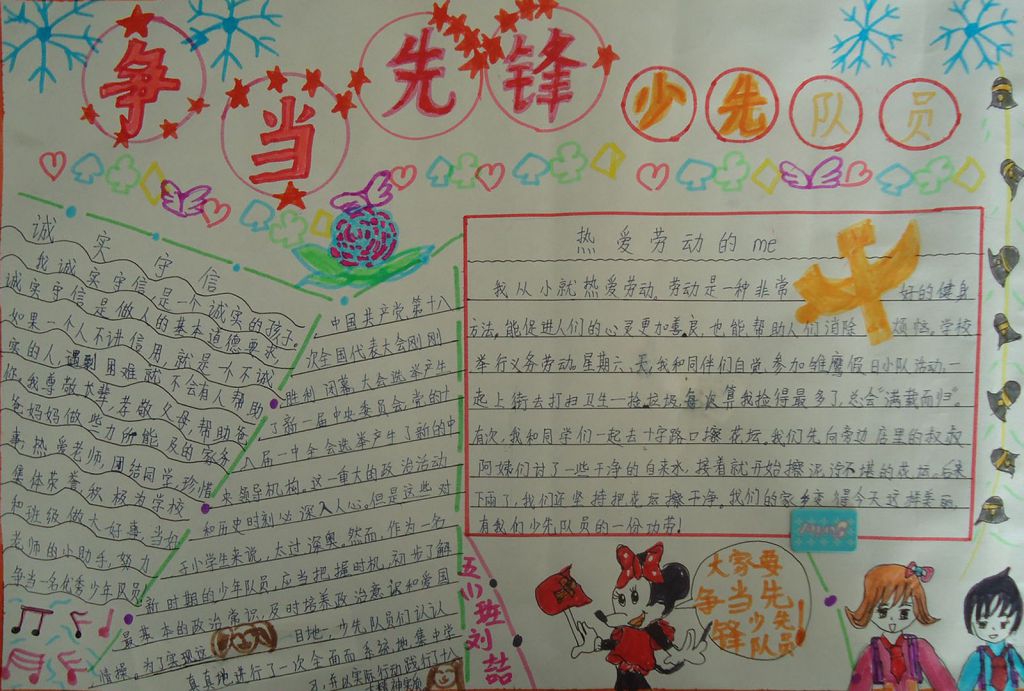 争当先锋少先队员
诚实守信
我诚实守信是一个诚实的孩子。
诚实守信是做人的基本道德要求
如果一个人不讲信用,就是一个不诚
实的人,遇到困难就不会有人帮助
你。我尊敬长辈,孝敬父母,帮助爸
爸妈妈做些力所能及的家务
事,热爱老师,团结同学,珍惜
集体荣誉,积极为学校
和班级做大好事,当好
老师的小助手,努力
争当一名优秀少年队员
中国共产党第十八
次全国代表大会刚刚
胜利闭幕,大会选举产生
了新一届中央委员会,党的十
八届一中全会选举产生了新的中
央领导机构。这一重大的政治活动
和历史时刻必深入人心。但是这些对
于小学生来说,太过深奥。然而,作为一名
新时期的少年队员,应当把握时机,初步了解
最基本的政治常识,及时培养政治意识和爱国
情操。为了实现这 目地一,少先队员们认认
真真地进行了一次全面而系统地集中学
习,并以实际行动践行十八
大精神实质
热爱劳动的me
我从小就热爱劳动。劳动是一种非常 好的健身
方法,能促进人们的心灵更加善良,也能帮助人们消除 烦恼。学校
举行义务劳动。星期六、天,我和同伴们自觉参加雏鹰假日小队活动,一
起上街去打扫卫生一捡垃圾,每次算我捡得最多了,总会“满载而归”。
有次,我和同学们一起去十字路口擦花坛。我们先向旁边店里的叔叔
阿姨们讨了一些干净的自来水,接着就开始擦泥泞不堪的花坛。后来
下雨了,我们还坚持把花坛擦干净。我们的家乡变得今天这样美丽,
有我们少先队员的一份功劳!
大家要
争当先
锋少先
队员!
五(1)班刘喆